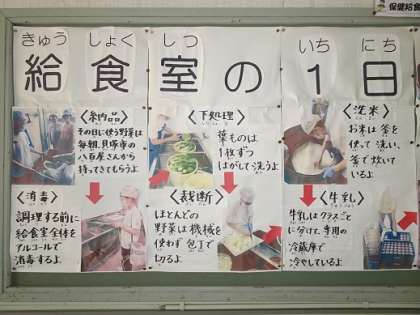 保健給食
きゅう しょく しつ いち にち
給食室の1日
〈納品〉
その日に使う野菜は
毎朝、貝塚市の
八百屋さんから
持ってきてもらうよ
〈消毒〉
調理する前に
給食室全体を
アルコールで
消毒するよ
〈下処理〉
葉ものは
1枚ずつ
はがして洗うよ
〈裁断〉
ほとんどの
野菜は機械を
使わず包丁で
切るよ
〈洗米〉
お米は釜を
使って洗い、
釜で炊いて
いるよ
〈牛乳〉
牛乳はクラスごと
に分けて、専用の
冷蔵庫で
冷やしているよ